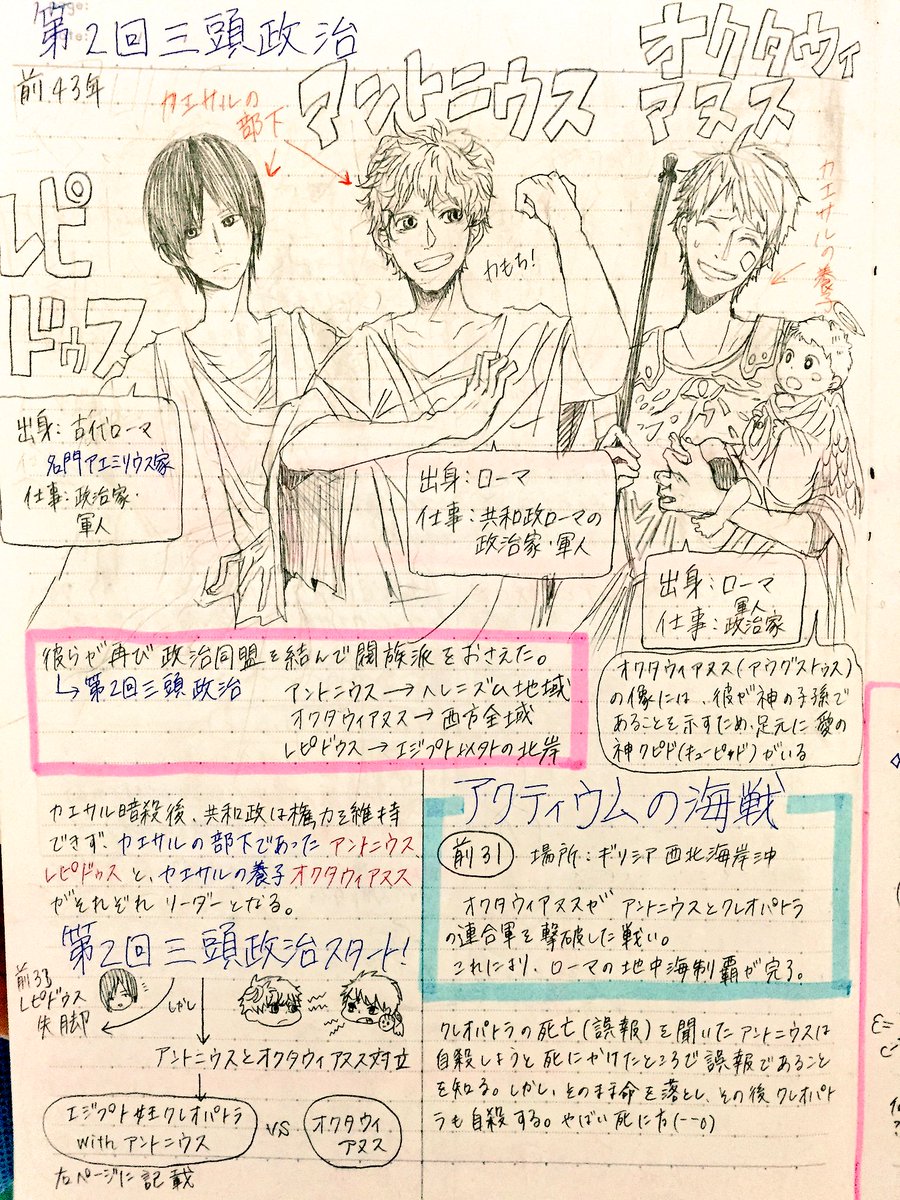 第2回三頭政治
前43年
カエサルの
部下
アントニウス
オクタウィ
アヌス
カエサルの養子
レピ
ドゥス
力もち!
出身:古代ローマ
名門アエミリウス家
仕事:政治家・
軍人
出身:ローマ
仕事:共和政ローマの
政治家・軍人
出身:ローマ
軍人
仕事:政治家
彼らが再び政治同盟を結んで閥族派をおさえた。
↳第2回三頭政治
アントニウス→ヘレニズム地域
オクタウィアヌス→西方全域
レピドゥス→エジプト以外の北岸
オクタウィアヌス(アウグストゥス)
の像には、彼が神の子孫で
あることを示すため、足元に愛の
神クピド(キューピッド)がいる
カエサル暗殺後、共和政は権力を維持
できず、カエサルの部下であったアントニウス
レピドゥスと、カエサルの養子オクタウィアヌス
がそれぞれリーダーとなる。
第2回三頭政治スタート!
レピドゥス
失脚
しかし
アントニウスとオクタウィアヌス対立
エジプト女王クレオパトラ
with アントニウス
VS
オクタウィ
アヌス
右ページに記載
アクティウムの海戦
前31
場所:ギリシア西北海岸沖
オクタウィアヌスがアントニウスとクレオパトラ
の連合軍を撃破した戦い。
これにより、ローマの地中海制覇が完了。
クレオパトラの死亡(誤報)を聞いたアントニウスは
自殺しようと死にかけたところで誤報であること
を知る。しかし、そのまま命を落とし、その後クレオパト
ラも自殺する。やばい死に方(--o)